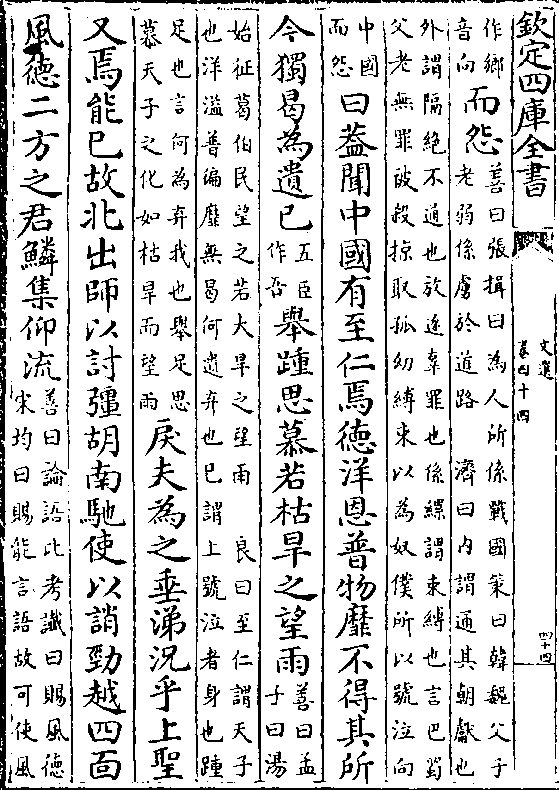 欽定四庫全書
文選
卷四十四
四十四
作鄉
音向
而怨
善曰張揖曰為人所係戰國策曰韓魏父子
老弱係虜於道路 濟曰内謂通其朝獻也
外謂隔絶不通也放逐辜罪也係縲謂束縛也言巴蜀
父老無罪破殺掠取孤幼縛束以為奴僕所以號泣向
中國
而怨
曰蓋聞中國有至仁焉德洋恩普物靡不得其所
今獨曷為遺已
五臣
作吾
舉踵思慕若枯旱之望雨
善曰孟
子曰湯
始征葛伯民望之若大旱之望雨 良曰至仁謂天子
也洋溢普徧靡無曷何遺弃也已謂上號泣者身也踵
足也言何為弃我也舉足思
慕天子之化如枯旱而望雨
戾夫為之垂涕況乎上聖
又焉能已故北出師以討彊胡南馳使以誚勁越四面
風德二方之君鱗集仰流
善曰論語比考讖曰賜風德
宋均曰賜能言語故可使風